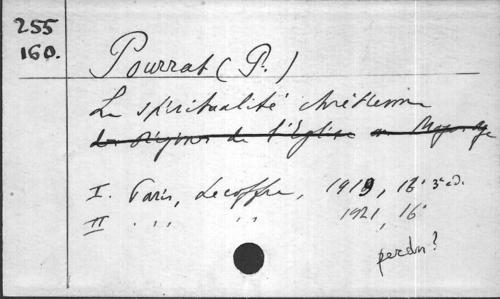 255
160.
Pourrat (P.)
La spiritualité chrétienne
des origines de l'Eglise au Moyen Age
I. Paris, Lecoffre, 1919, 16° 3e éd.
II " " 1921, 16°
perdu?